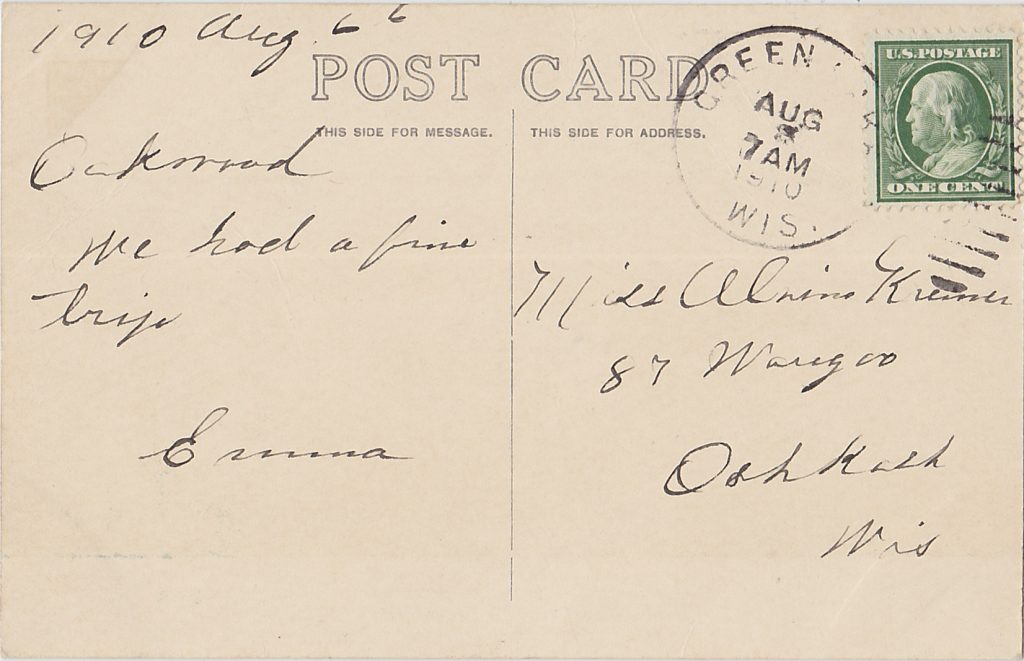 1910 Aug. 6
POST CARD
THIS SIDE FOR MESSAGE.
THIS SIDE FOR ADDRESS.
Oakwood
We had a fine
trip
Emma
GREEN
AUG
7AM
1910
WIS.
U.S. POSTAGE
ONE CENT
Miss Kremer
87 Waugoo
Oshkosh
Wis